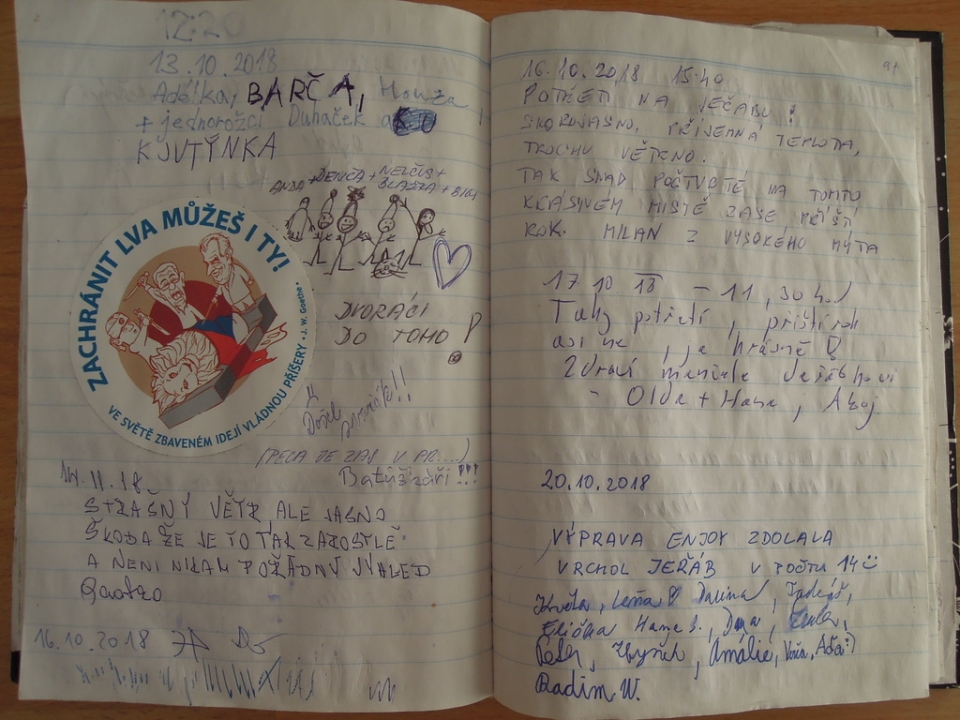 12:20
13.10.2018
Adélka, BARČA, Honza
+ jednorožci Duháček a
KJUTÝNKA
ZACHRÁNIT LVA MŮŽEŠ I TY!
VE SVĚTĚ ZBAVENÉM IDEJÍ VLÁDNOU PŘÍŠERY • J. W. Goethe •
DVORÁCI
DO TOHO!
Došel
(PECA JE ZAS V
14.11.18
STRAŠNÝ VĚTR, ALE JASNO
ŠKODA ŽE JE TO TAK ZAROSTLÉ
A NENI NIKAM POŘÁDNÝ VÝHLED
16.10.2018
16.10.2018 15:40
POTŘETÍ NA JEŘÁBU!
SKOROJASNO, PŘÍJEMNÁ TEPLOTA,
TROCHU VĚTRNO.
TAK SNAD POČTVRTÉ NA TOMTO
KRÁSNÉM MÍSTĚ ZASE PŘÍŠTÍ
ROK. MILAN Z VYSOKÉHO MÝTA
17 10 18 – 11,30 hod
Taky potřetí, příští rok
asi ne, je krásně!
Zdraví
- Olda + Hana, Ahoj
20.10.2018
VÝPRAVA ENJOY ZDOLALA
VRCHOL JEŘÁB V POČTU 14
Květa, Lenka
Eliška Hana S., Dana,
Petr, Hynek, Amálie,
Radim W.